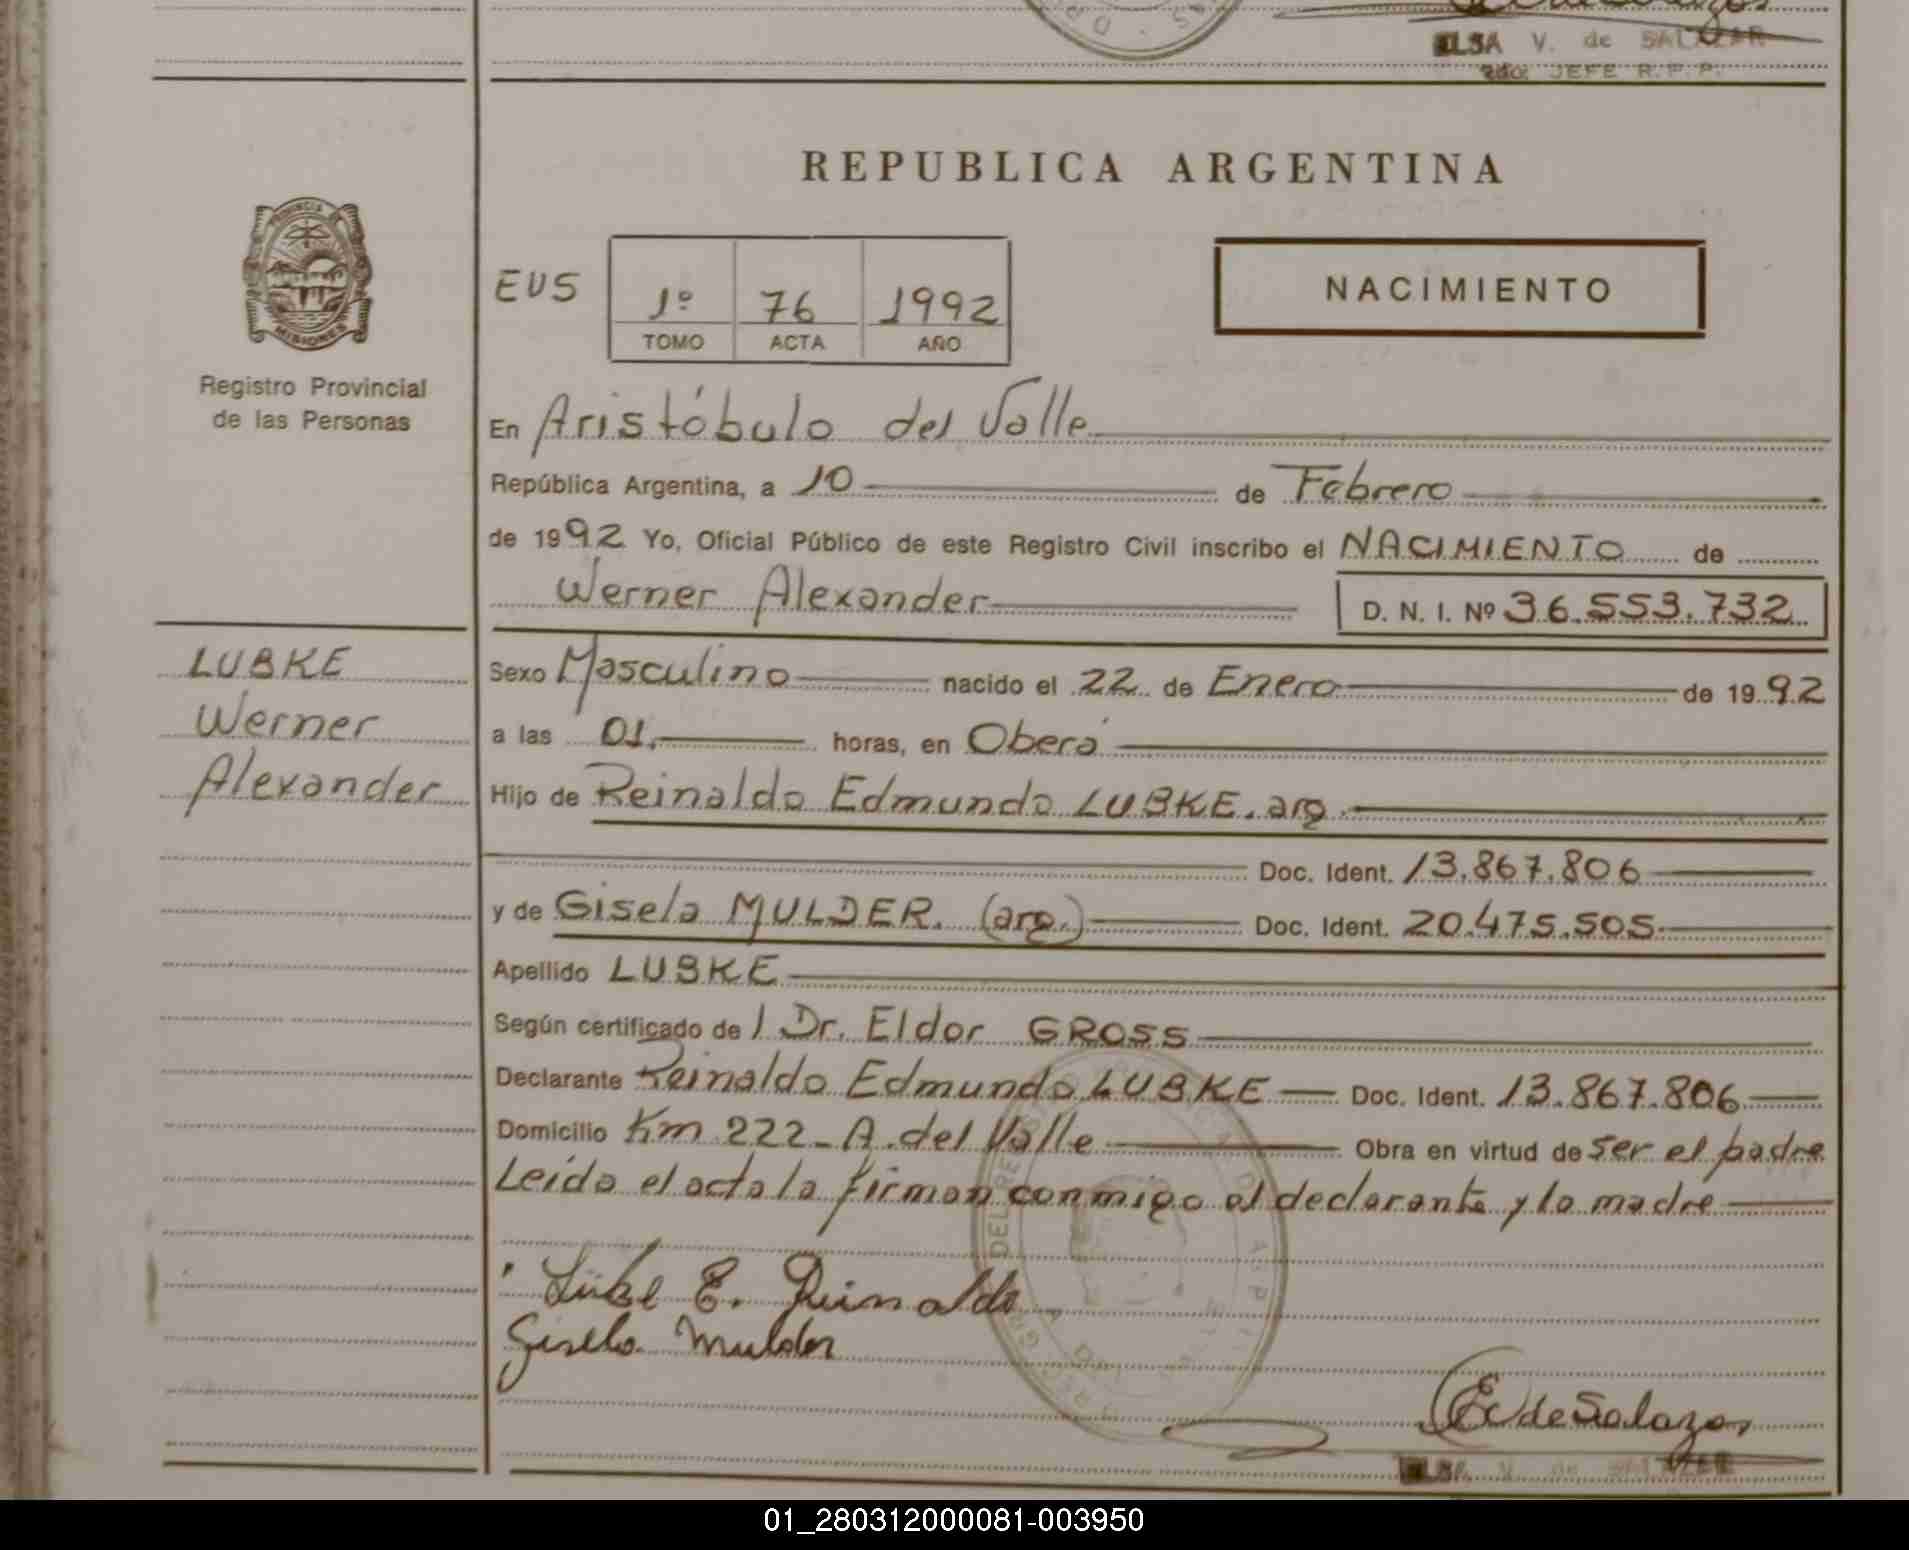 ELSA V. de SALAZAR
2do. JEFE R.P.P.
REPUBLICA ARGENTINA
PROVINCIA
MISIONES
Registro Provincial
de las Personas
EVS
1º 76 1992
TOMO ACTA AÑO
NACIMIENTO
En Aristóbulo del Valle
República Argentina, a 10 de Febrero
de 1992 Yo, Oficial Público de este Registro Civil inscribo el NACIMIENTO de
Werner Alexander D. N. I. Nº 36.553.732
LUBKE
Werner
Alexander
Sexo Masculino nacido el 22 de Enero de 1992
a las 01, horas, en Oberá
Hijo de Reinaldo Edmundo LUBKE. arg.
Doc. Ident. 13.867.806
y de Gisela MULDER. (arg.) Doc. Ident. 20.475.505
Apellido LUBKE
Según certificado de l Dr. Eldor GROSS
Declarante Reinaldo Edmundo LUBKE Doc. Ident. 13.867.806
Domicilio Km 222 - A. del Valle Obra en virtud de ser el padre
Leída el acta la firman conmigo el declarante y la madre
Lübke E. Reinaldo
Gisela Mulder
E V de Salazar
ELSA V. de SALAZAR
01_280312000081-003950